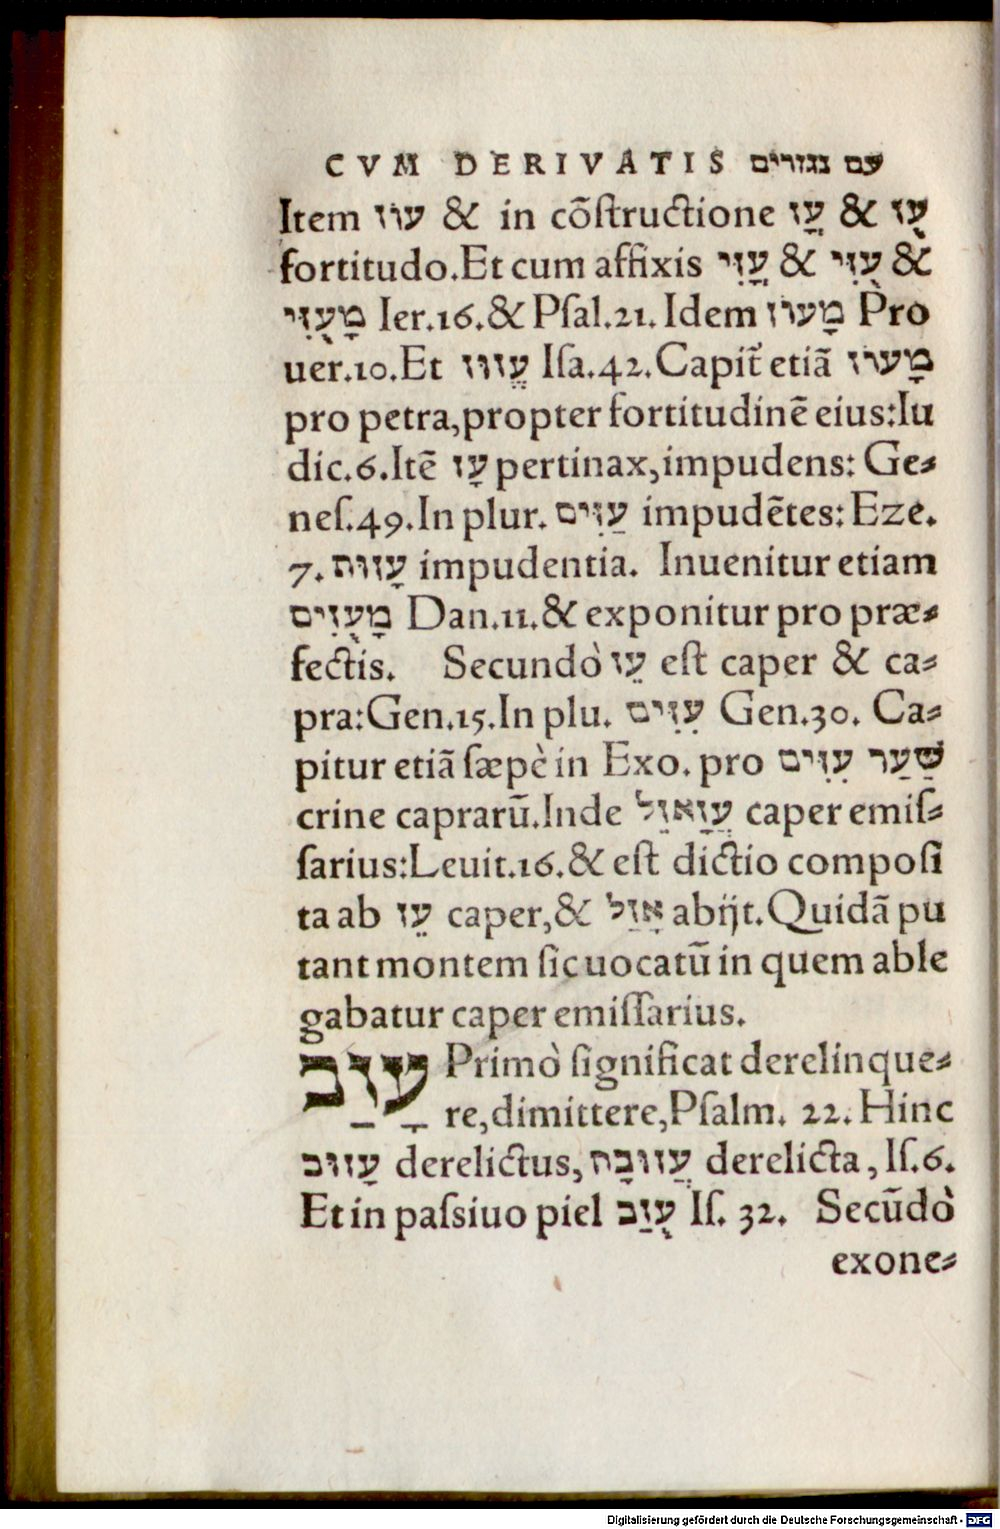 CVM DERIVATIS עם נגזרים
Item עוֹז & in cōſtructione עֲז & עֻז
fortitudo.Et cum affixis עֳזִּי & עֻזִּי &
מָעֻזִּי Ier.16.& Pſal.21. Idem מָעוֹז Pro
uer.10.Et עֱזוּז Iſa.42.Capit̄ etiā מָעוֹז
pro petra,propter fortitudinē eius:Iu
dic.6.Itē עָז pertinax,impudens: Ge⸗
neſ.49.In plur. עַזִּים impudētes: Eze.
7. עָזוּת impudentia. Inuenitur etiam
מָעֻזִּים Dan.11.& exponitur pro præ⸗
fectis. Secundò עֵז eſt caper & ca⸗
pra:Gen.15.In plu. עִזִּים Gen.30. Ca⸗
pitur etiā ſæpè in Exo. pro שַׂעַר עִזִּים
crine caprarū.Inde עֲזָאזֵל caper emiſ⸗
ſarius:Leuit.16.& eſt dictio compoſi
ta ab עֵז caper,& אָזַל abijt.Quidā pu
tant montem ſic uocatū in quem able
gabatur caper emiſſarius.
עָזַב Primò ſignificat derelinque⸗
re,dimittere,Pſalm. 22. Hinc
עַזוּב derelictus, עֲזוּבָה derelicta, Iſ.6.
Et in paſsiuo piel עֻזַּב Iſ. 32. Secūdò
exone⸗
Digitalisierung gefördert durch die Deutsche Forschungsgemeinschaft - DFG